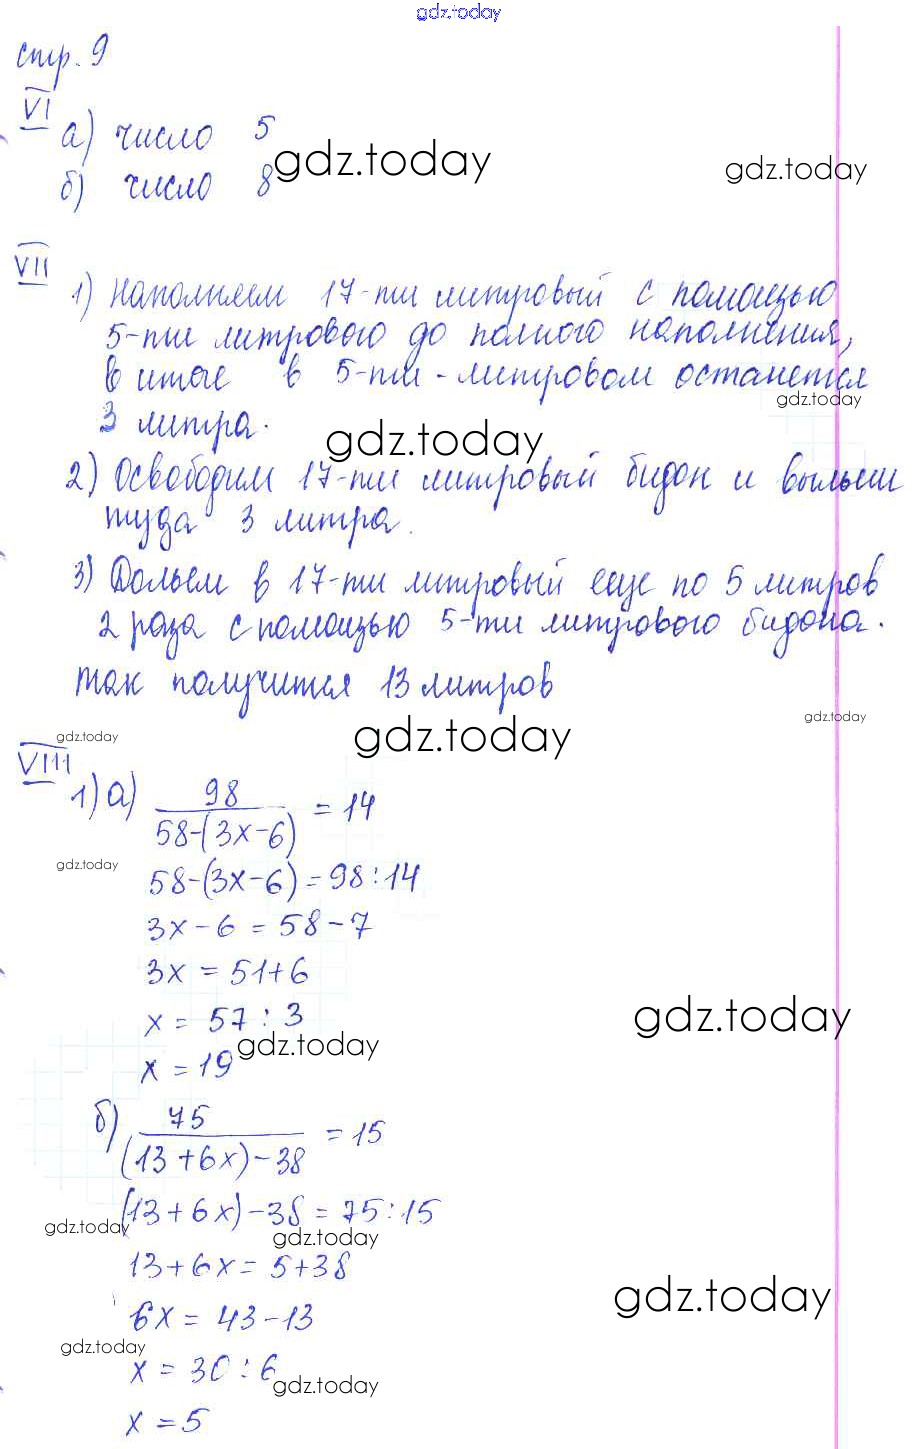 gdz.today
стр. 9
VI
а) число 5
gdz.today
gdz.today
б) число 8
VII
1) Наполняем 17-ти литровый с помощью
5-ти литрового до полного наполнения,
в итоге в 5-ти-литровом останется
gdz.today
3 литра.
gdz.today
2) Освободим 17-ти литровый бидон и выльем
туда 3 литра.
3) Дольем в 17-ти литровый еще по 5 литров
2 раза с помощью 5-ти литрового бидона.
так получится 13 литров
gdz.today
gdz.today
gdz.today
VIII
1) а) 98 / 58-(3x-6) = 14
gdz.today
58-(3x-6) = 98:14
3x-6 = 58-7
3x = 51+6
x = 57:3
gdz.today
gdz.today
x = 19
б) 75 / (13+6x)-38 = 15
(13+6x)-38 = 75:15
gdz.today
gdz.today
13+6x = 5+38
gdz.today
6x = 43-13
gdz.today
x = 30:6
gdz.today
x = 5